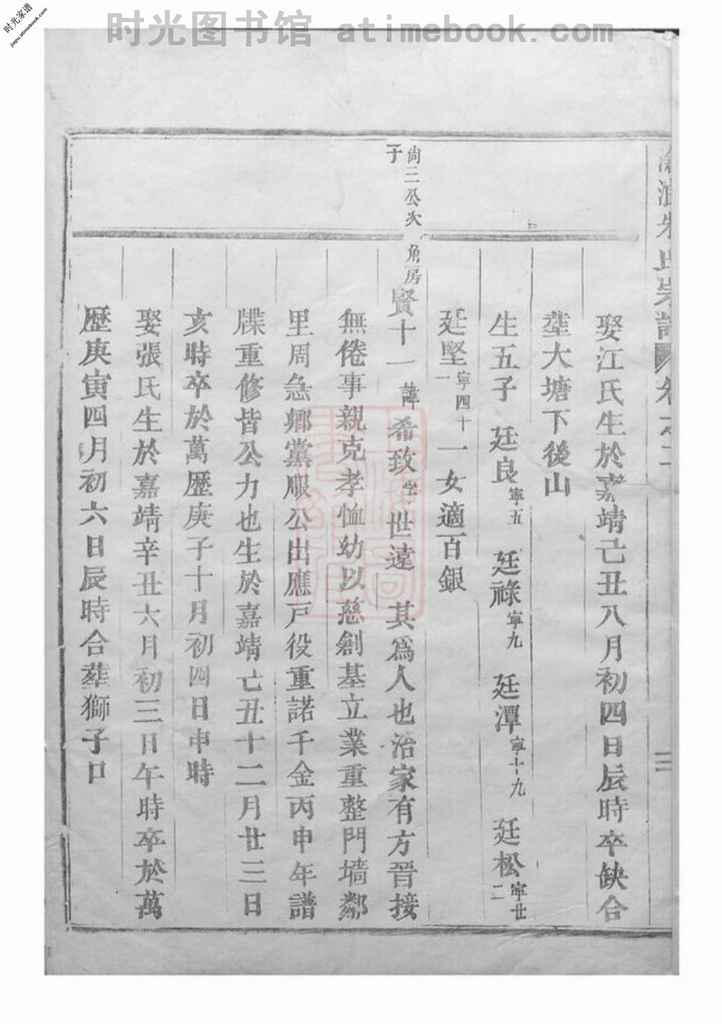 时光图书馆 - atimebook.com
时光家谱
jiapu.atimebook.com
朱氏宗譜 卷之二
娶江氏生於嘉靖己丑八月初四日辰時卒缺合
塟大塘下後山
生五子 廷良寧五 廷祿寧九 廷潭寧十九 廷松寧廿二
廷堅寧四十一 一女適百銀
尙二公次子 角房
賢十一諱希致字世遠 其爲人也治家有方晉接
無倦事親克孝恤幼以慈創基立業重整門墻鄰
里周急鄕黨服公出應戸役重諾千金丙申年譜
牒重修皆公力也生於嘉靖己丑十二月廿三日
亥時卒於萬歷庚子十月初四日申時
娶張氏生於嘉靖辛丑六月初三日午時卒於萬
歷庚寅四月初六日辰時合塟獅子口